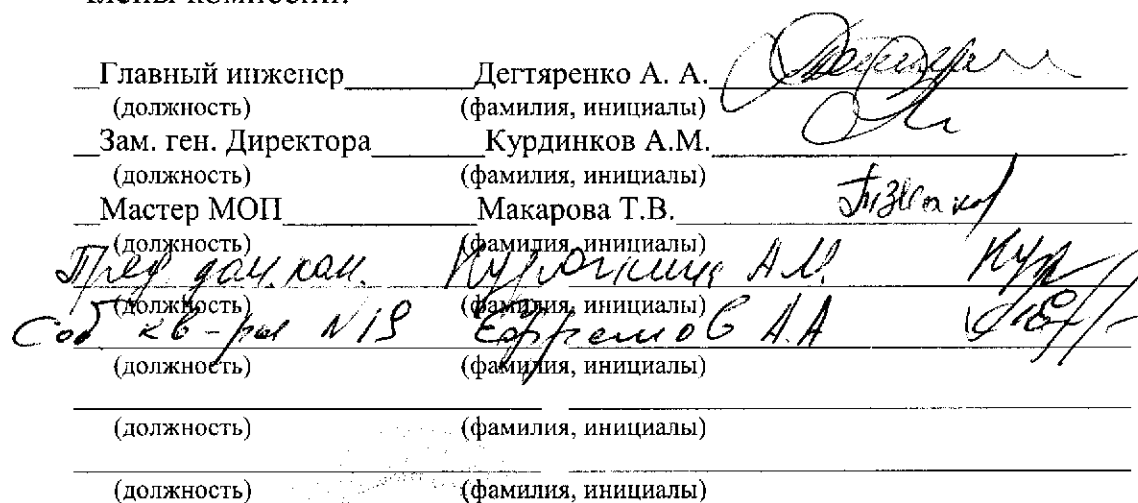 члены комиссии:
Главный инженер Дегтяренко А. А.
(должность) (фамилия, инициалы)
Зам. ген. Директора Курдинков А.М.
(должность) (фамилия, инициалы)
Мастер МОП Макарова Т.В.
(должность) (фамилия, инициалы)
Пред дом. ком. А.М. Кур
(должность) (фамилия, инициалы)
Соб кв-ры N19 Ефремов А.А
(должность) (фамилия, инициалы)
(должность) (фамилия, инициалы)
(должность) (фамилия, инициалы)